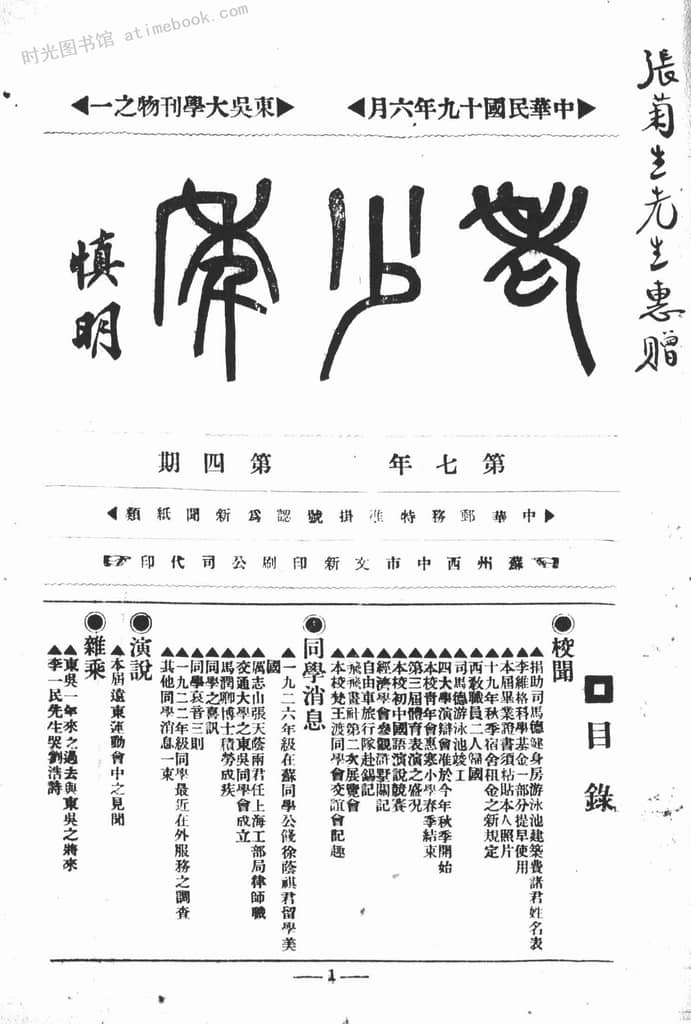 时光图书馆 atimebook.com
張菊生先生惠贈
中華民國十九年六月
東吳大學刊物之一
老少年
慎明
第七年 第四期
中華郵務特准掛號認爲新聞紙類
蘇州西中市文新印刷公司代印
目錄
校聞
捐助司馬德健身房游泳池建築費諸君姓名表
李維格科學基金一部分提早使用
本屆畢業證書須粘貼本人照片
十九年秋季宿舍租金之新規定
西敎職員二人歸國
司馬德游泳池竣工
四大學演辯會准於今年秋季開始
本校靑年會惠寒小學春季結束
第三屆體育表演之盛况
本校初中國語演說競賽
經濟學會參觀滸墅關記
自由車旅行隊赴錫記
飛飛畫社第二次展覽會
本校梵王渡同學會交誼會記趣
同學消息
一九二六年級在蘇同學公餞徐蔭祺君留學美國
厲志山張天蔭兩君任上海工部局律師職
交通大學之東吳同學會成立
馬潤卿博士積勞成疾
同學之喜訊
同學哀音三則
一九二二年級同學最近在外服務之調査
其他同學消息一束
演說
本屆遠東運動會中之見聞
雜乘
東吳一年來之過去與東吳之將來
李一民先生哭劉浩詩
1